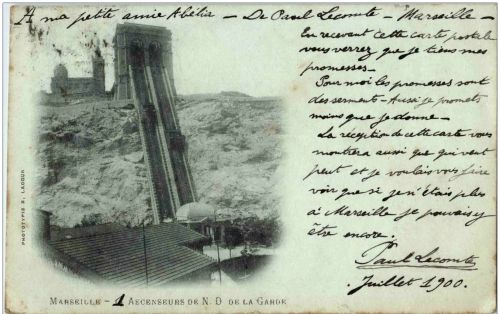 A ma petite amie Abélia - De Paul Lecomte - Marseille -
En recevant cette carte postale
vous verrez que je tiens mes
promesses -
Pour moi les promesses sont
des serments - Aussi je promets
moins que je donne -
La réception de cette carte vous
montrera aussi que qui veut
peut et je voulais vous faire
voir que si je n'étais plus
à Marseille je pouvais y
être encore.
Paul Lecomte
Juillet 1900.
PHOTOTYPIE E. LACOUR
MARSEILLE - 1 ASCENSEURS DE N. D. DE LA GARDE